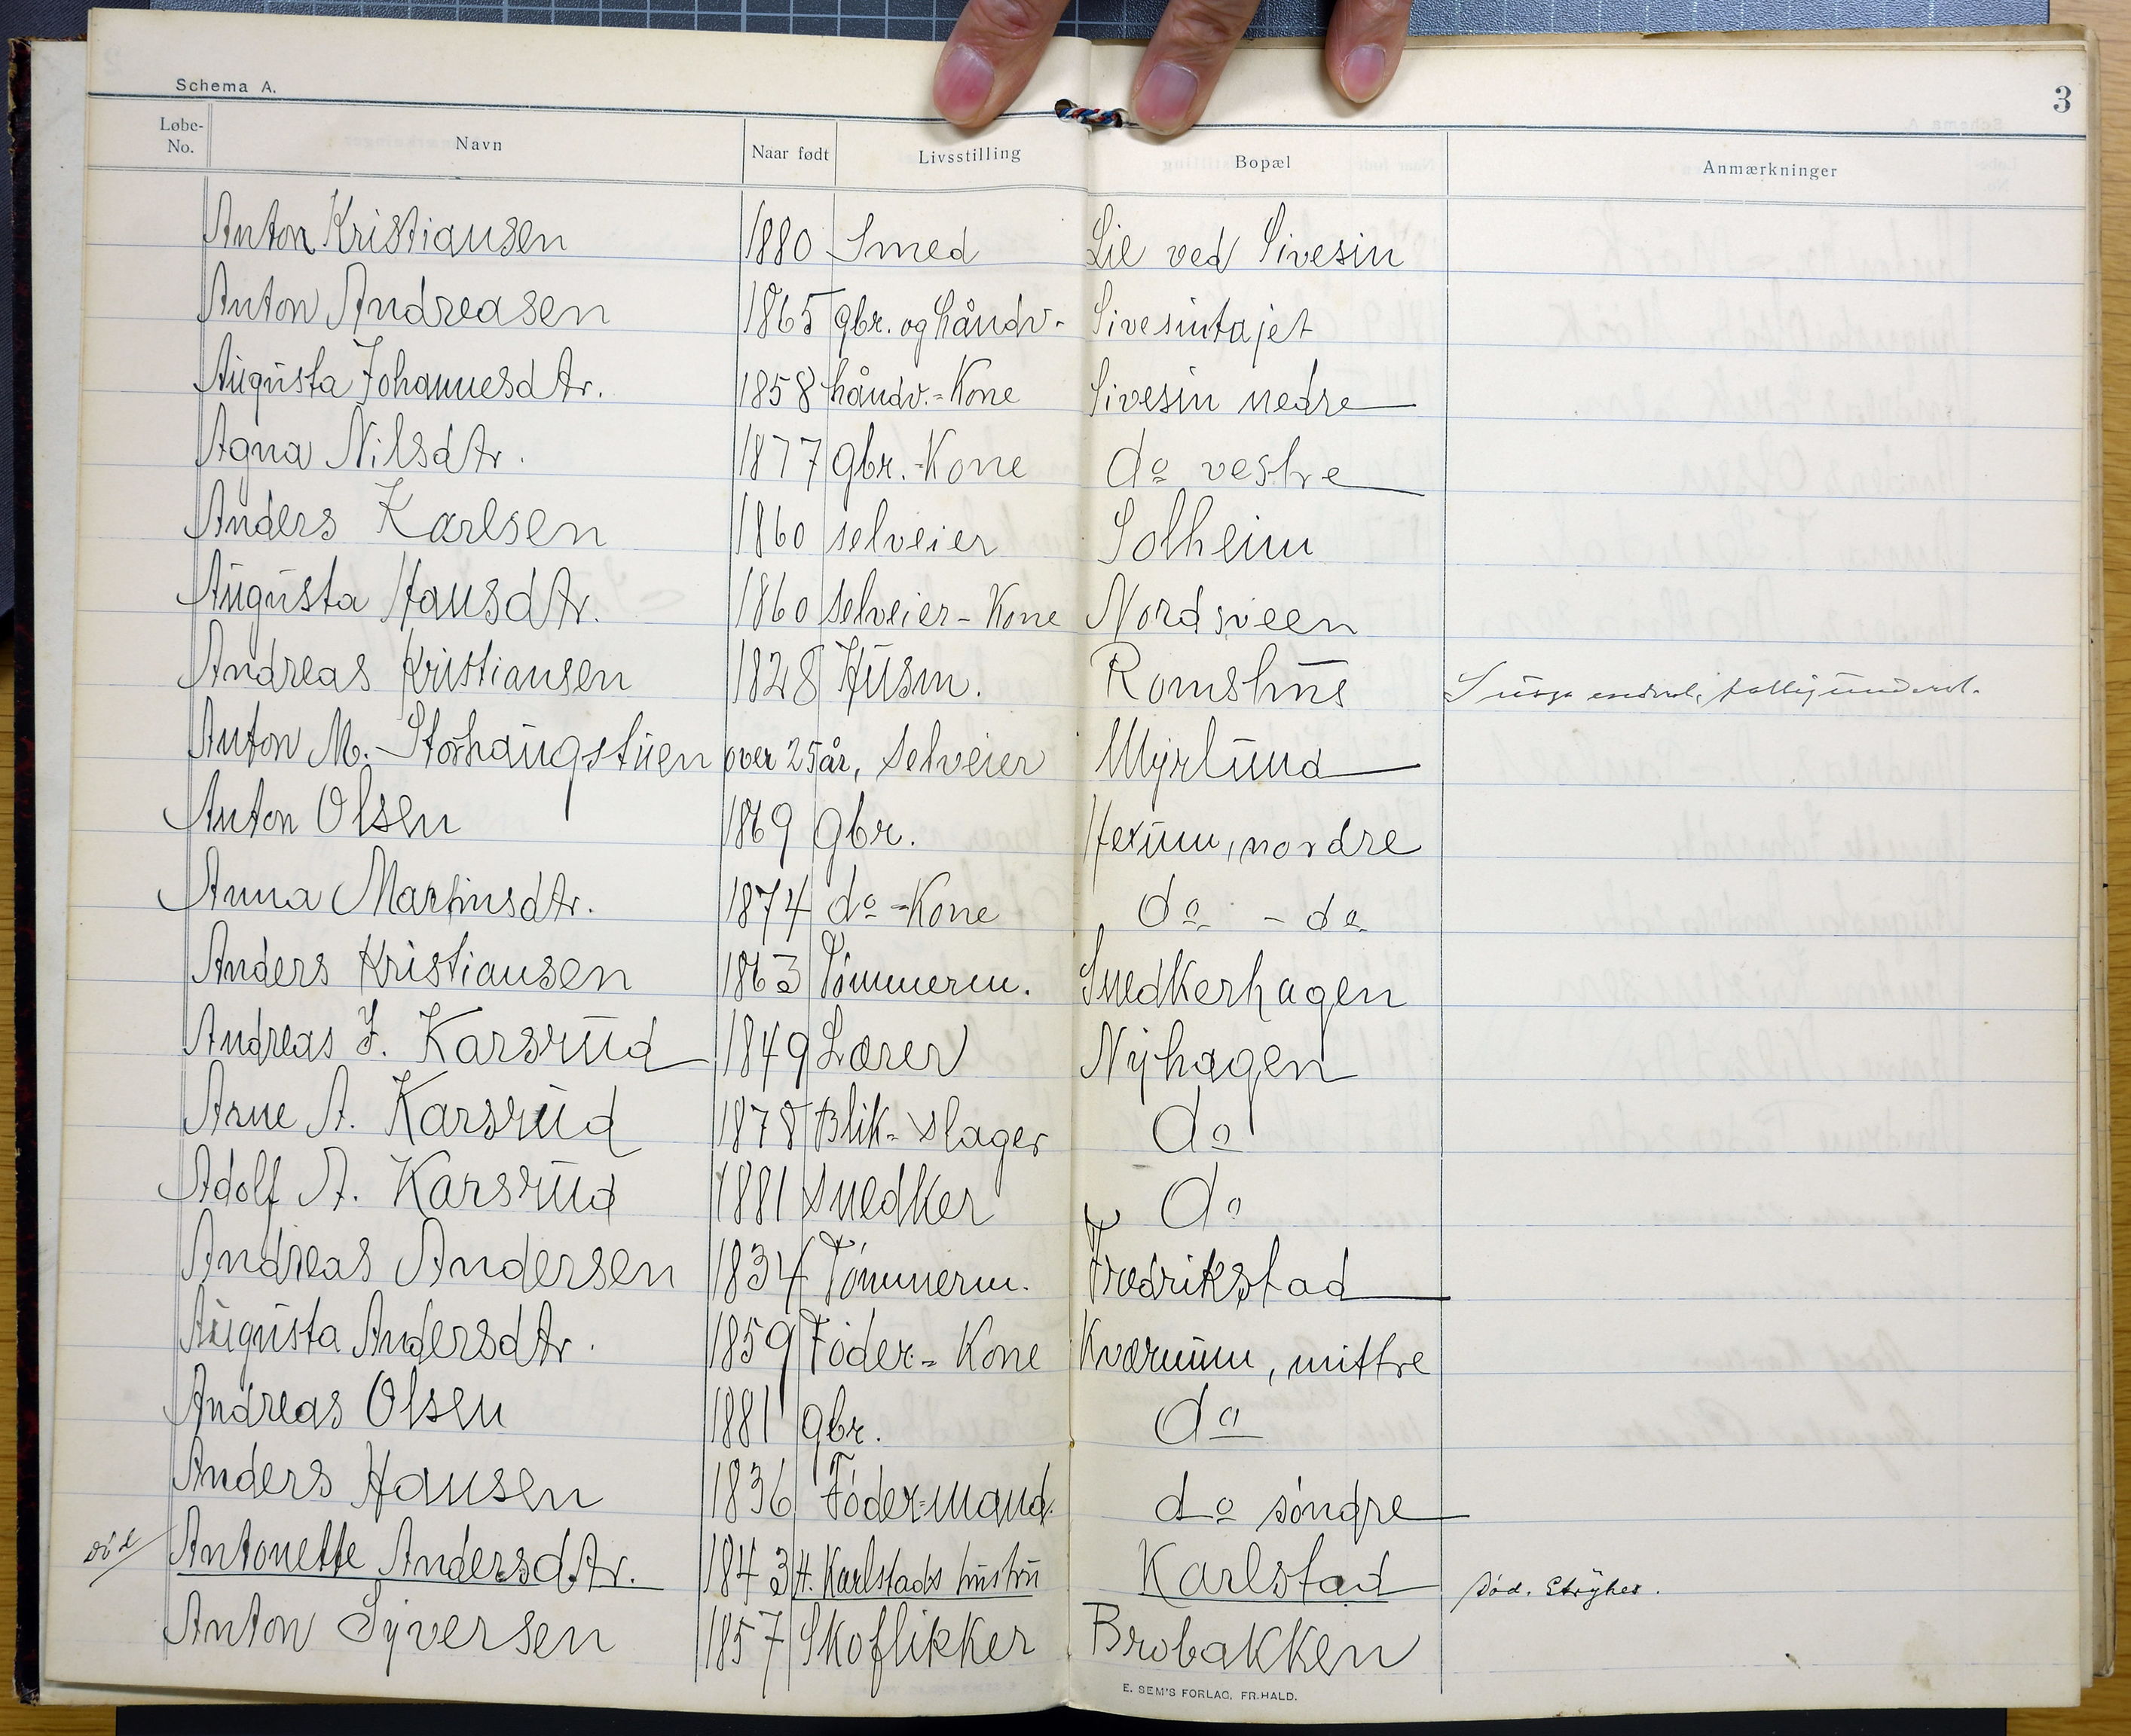 Schema A.
3
Løbe-No. Navn Naar født Livsstilling Bopæl Anmærkninger
Anton Kristiansen 1880 Smed Lie ved Sivesin
Anton Andreasen 1865 gbr. og håndv- Sivesintajet
Augusta Johannesdtr. 1858 håndv.-Kone Sivesin nedre
Agna Nilsdtr. 1877 gbr.-Kone do vestre
Anders Karlsen 1860 selveier Solheim
Augusta Hansdtr. 1860 selveier-Kone Nordsveen
Andreas Kristiansen 1828 Husm. Romshus
Anton M. Storhaugstuen over 25 år, selveier Myrlund
Anton Olsen 1869 gbr. Hexum, nordre
Anna Martinsdtr. 1874 do-Kone do - do
Anders Kristiansen 1863 Tömmerm. Snedkerhagen
Andreas J. Karsrud 1849 Lærer Nyhagen
Arne A. Karsrud 1878 Blik-slager do
Adolf A. Karsrud 1881 snedker do
Andreas Andersen 1834 Tömmerm. Fredrikstad
Augusta Andersdtr. 1859 Föder-Kone Kværnum, mittre
Andreas Olsen 1881 gbr. do
Anders Hansen 1836 Föder-mand. do söndre
död Antonette Andersdtr. 1843 H. Karlstads hustru Karlstad död. Stryges.
Anton Syversen 1857 Skoflikker Brobakken
E. SEM'S FORLAG, FR.HALD.